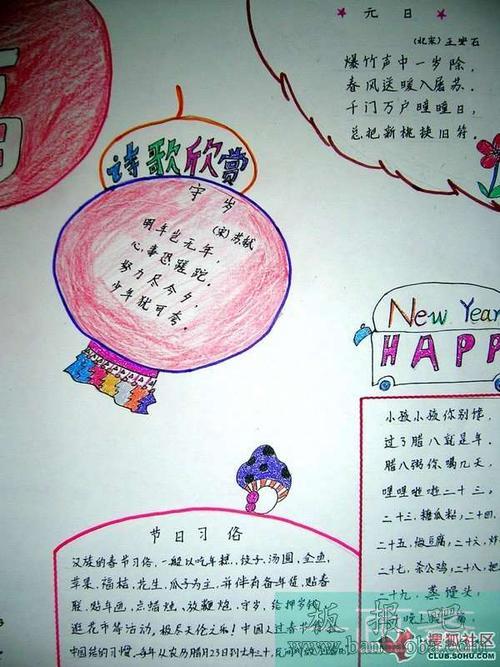 元 日
(北宋)王安石
爆竹声中一岁除,
春风送暖入屠苏.
千门万户瞳瞳日,
总把新桃换旧符.
诗歌欣赏
守 岁
(宋)苏轼
明年岂无年,
心事恐蹉跎,
努力尽今夕,
少年犹可夸.
New Year
HAPP
小孩小孩你别馋,
过了腊八就是年.
腊八粥你喝几天,
哩哩啦啦二十三,
二十三,糖瓜粘,二十四,
二十五,做豆腐,二十
二十七,杀公鸡,二十八,
二十九,蒸馒头,
晚上
节 日 习 俗
汉族的春节习俗,一般以吃年糕、饺子、汤圆、全鱼、
苹果、福桔、花生、瓜子为主,并伴有备年货、贴春
联、贴年画、点蜡烛、放鞭炮、守岁、给押岁钱
逛花市等活动,极尽天伦之乐!中国人过春节
的习惯,每年从农历腊月23日到大年三十,民
板报吧
搜狐社区
CLUB.SOHU.COM